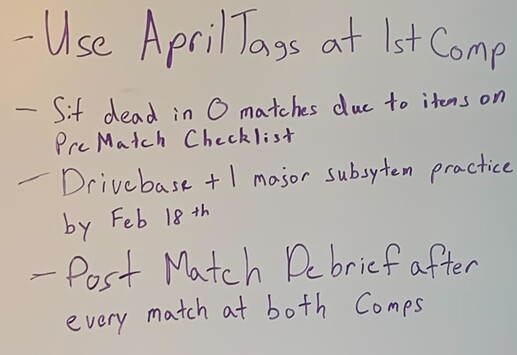 - Use AprilTags at 1st Comp
- Sit dead in 0 matches due to items on
Pre Match Checklist
- Drivebase + 1 major subsytem practice
by Feb 18th
- Post Match Debrief after
every match at both Comps